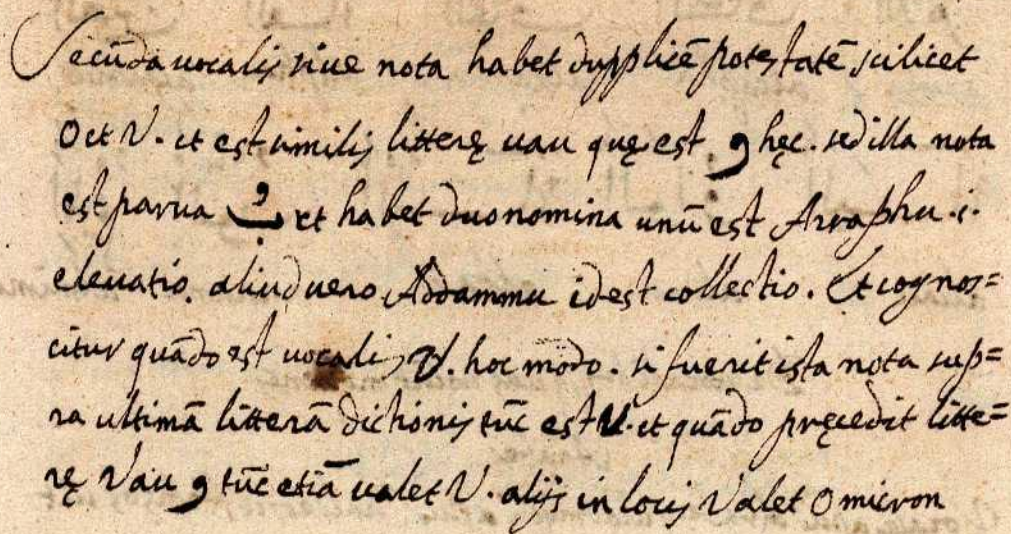 Secūda uocalis siue nota habet dupplicē potestatē scilicet
O et V. et est similis litterę uau quę est و hęc. sed illa nota
est parua ـُ et habet duo nomina unū est Arraphu .i.
eleuatio. aliud uero Addammu id est collectio. Et cognos=
citur quādo est uocalis V. hoc modo. si fuerit ista nota sup=
ra ultimā litterā dictionis tūc est V. et quādo pręcedit litte=
rę Vau و tūc etiā ualet V. alijs in locis Valet O micron